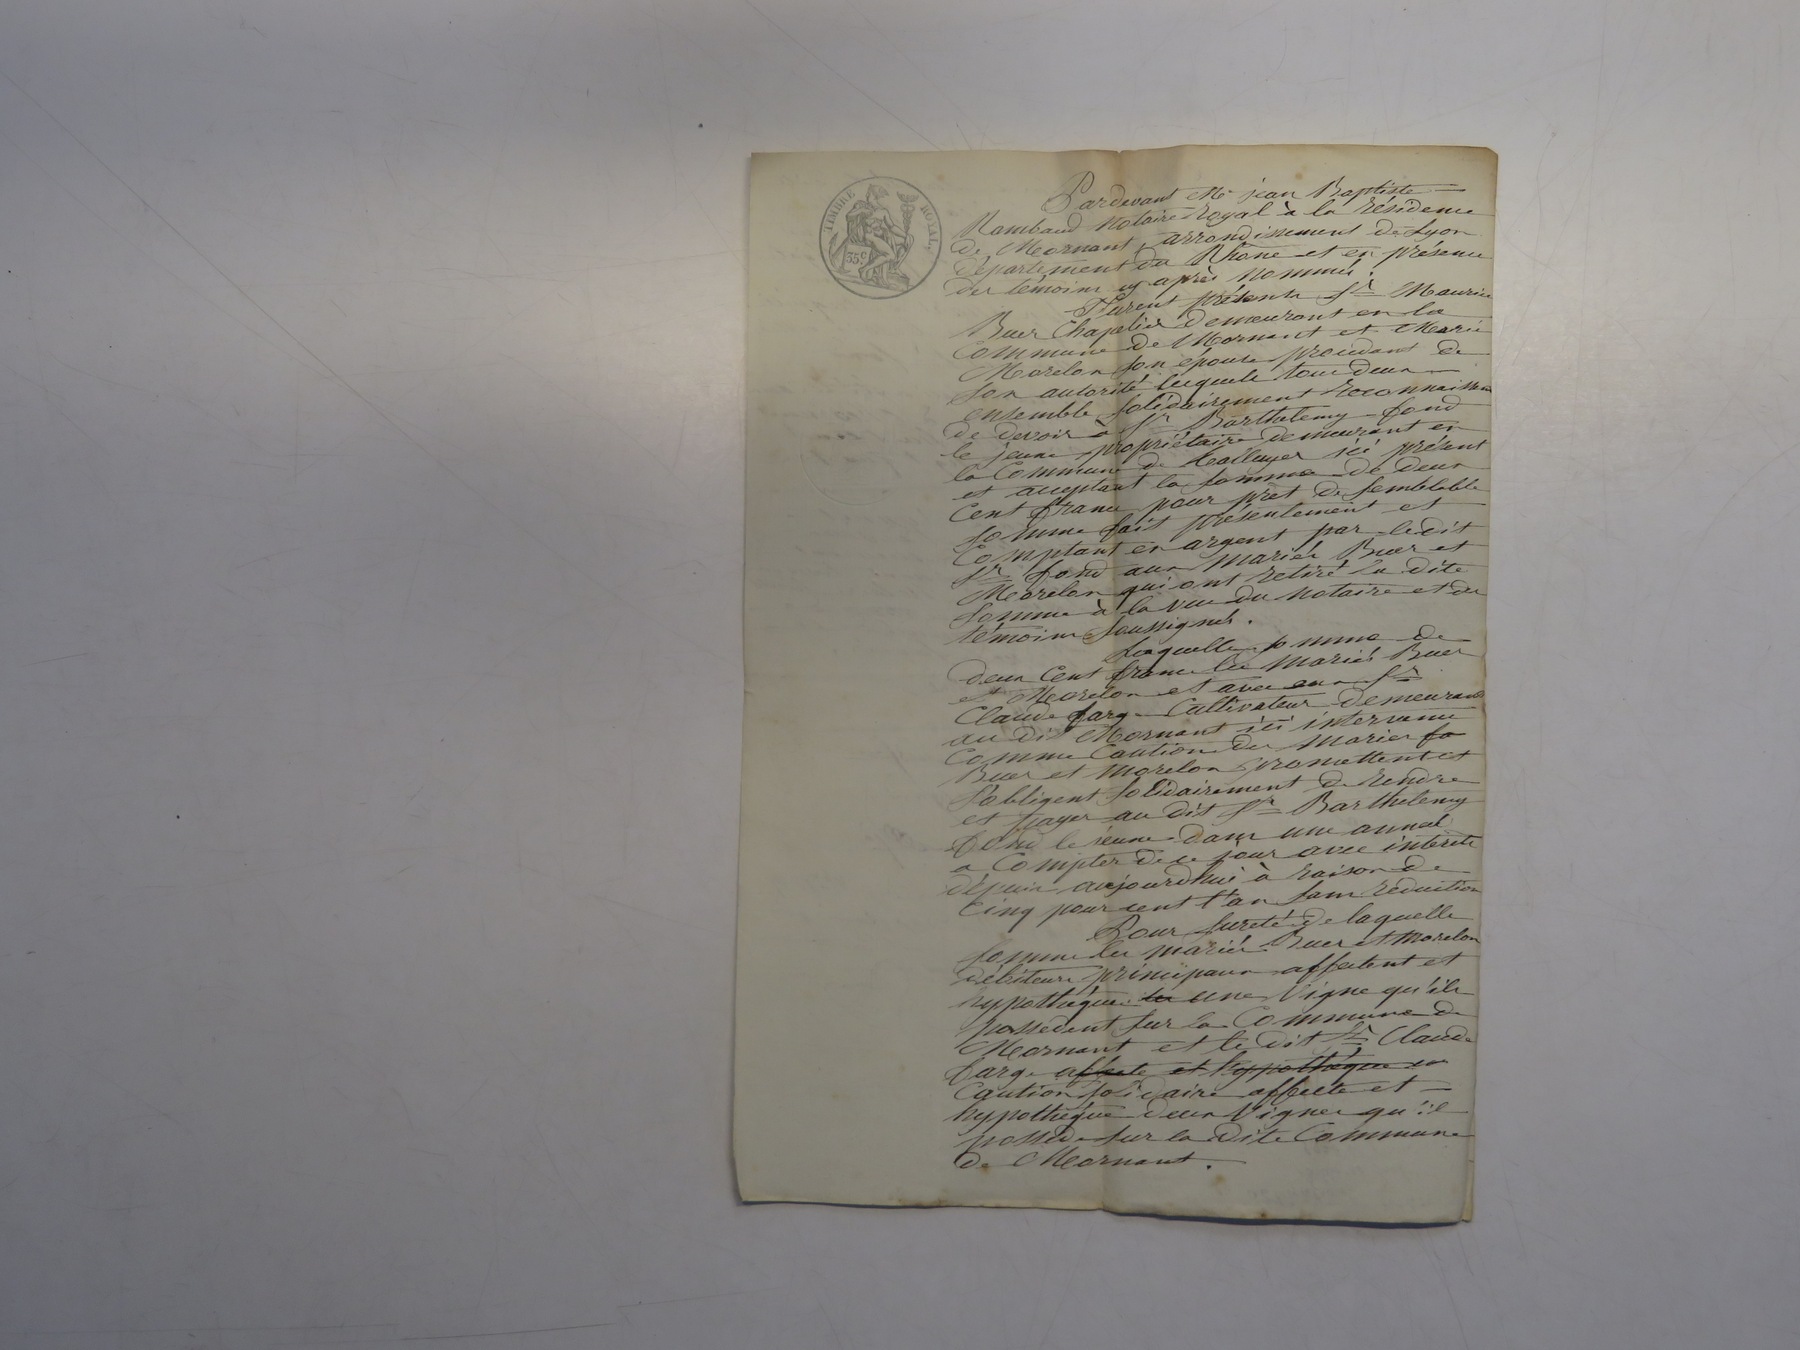 TIMBRE ROYAL
35 c
Pardevant Me jean Baptiste
Rambaud Notaire Royal à la Résidence
de Mornant, arrondissement de Lyon
département du Rhône et en présence
des témoins cy après Nommés.
Furent présents Sr Maurice
Buer Chapelier demeurant en la
Commune de Mornant et Marie
Morelon son épouse procédant de
son autorité lesquels tous deux
ensemble solidairement reconnaissent
de devoir à Sr Barthelemy fond
le jeune propriétaire demeurant en
la Commune de ici présent
et acceptant la somme de deux
Cent francs pour prêt de semblable
somme fait présentement et
Comptant en argent par ledit
Sr fond aux mariés Buer et
Morelon qui ont retiré la dite
somme à la vue du Notaire et des
témoins soussignés.
Laquelle somme de
deux Cent francs les mariés Buer
et Morelon et avec eux Sr
Claude farge Cultivateur demeurant
au dit Mornant ici intervenu
Comme Caution des mariés
Buer et Morelon promettent et
s'obligent solidairement de rendre
et payer au dit Sr Barthelemy
fond le jeune dans une année
a Compter de ce jour avec intérêts
depuis aujourdhui à raison de
Cinq pour cent l'an sans réduction
Pour sureté de laquelle
somme les mariés Buer et Morelon
débiteurs principaux affectent et
hypothèque une Vigne qu'ils
possedent sur la Commune de
Mornant et le dit Sr Claude
farge affecte et hypothèque
Caution solidaire affecte et
hypothèque deux Vignes qu'il
possède sur la dite Commune
de Mornant.